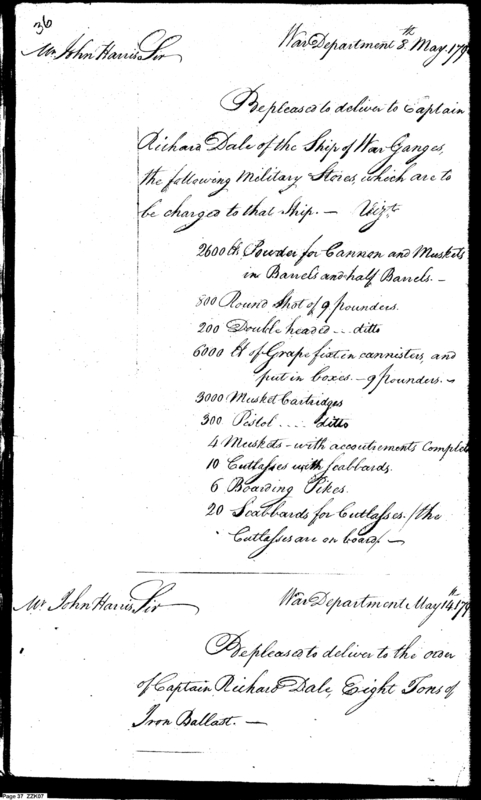 36
War Department 8th May 179
Mr. John Harris, Sir
Be pleased to deliver to Captain
Richard Dale of the Ship of War Ganges,
the following Military Stores, which are to
be charged to that Ship. — Vizt.
2600 lb Powder for Cannon and Muskets
in Barrels and half Barrels. —
800 Round Shot of 9 pounders.
200 Double headed ... ditto
6000 lb of Grape fixt. in cannisters, and
put in boxes. — 9 pounders. —
3000 Musket Cartridges
300 Pistol .... ditto
4 Muskets - with accoutrements Complete
10 Cutlasses with Scabbards.
6 Boarding Pikes.
20 Scabbards for Cutlasses. /the
Cutlasses are on board/. —
War Department May 14th 179
Mr. John Harris, Sir
Be pleased to deliver to the order
of Captain Richard Dale, Eight Tons of
Iron Ballast. —
Page 37 ZZK07